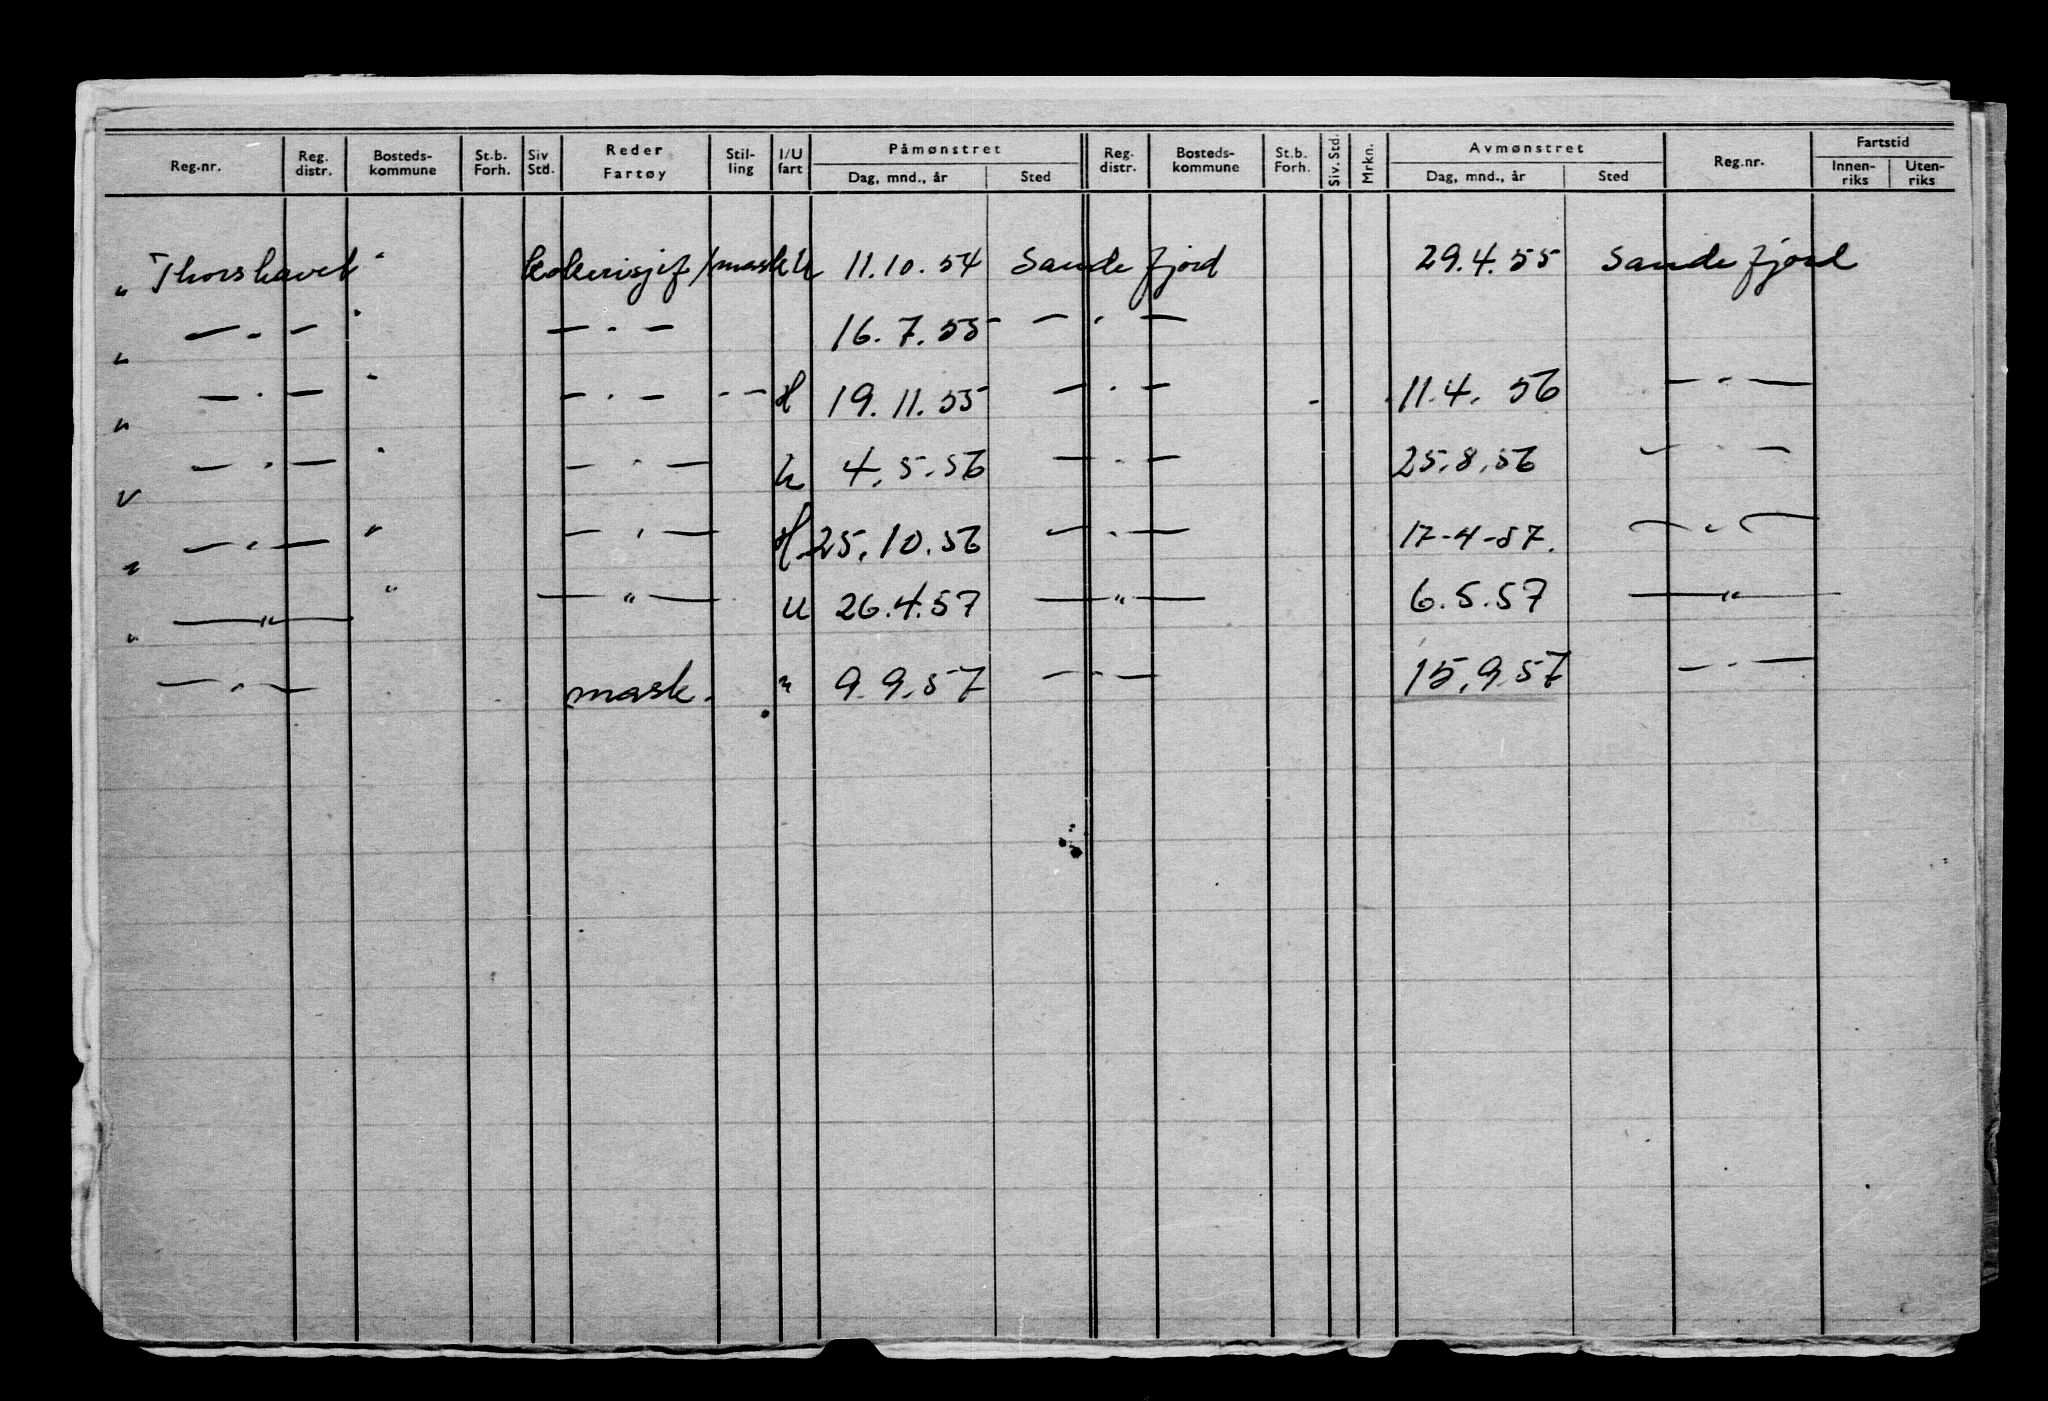 Reg.nr. Reg. distr. Bosteds-kommune St.b. Forh. Siv Std. Reder Fartøy Stil-ling I/U fart Påmønstret Dag, mnd., år Sted Reg. distr. Bosteds-kommune St.b. Forh. Siv. Std. Mrkn. Avmønstret Dag, mnd., år Sted Reg.nr. Fartstid Innen-riks Uten-riks
"Thorshavet" kokerisjef/mask U 11.10.54 Sandefjord 29.4.55 Sandefjord
" — " — " — . — 16.7.55 — . —
" — . — " — . — - — H 19.11.55 — . — 11.4.56 — " —
" — . — " — " — U 4.5.56 — . — 25.8.56 — . —
" — " — " — " — H 25.10.56 — . — 17-4-57. — " —
" — " — " — " — U 26.4.57 — " — 6.5.57 — " —
" — " — mask. " 9.9.57 — " — 15.9.57 — . —